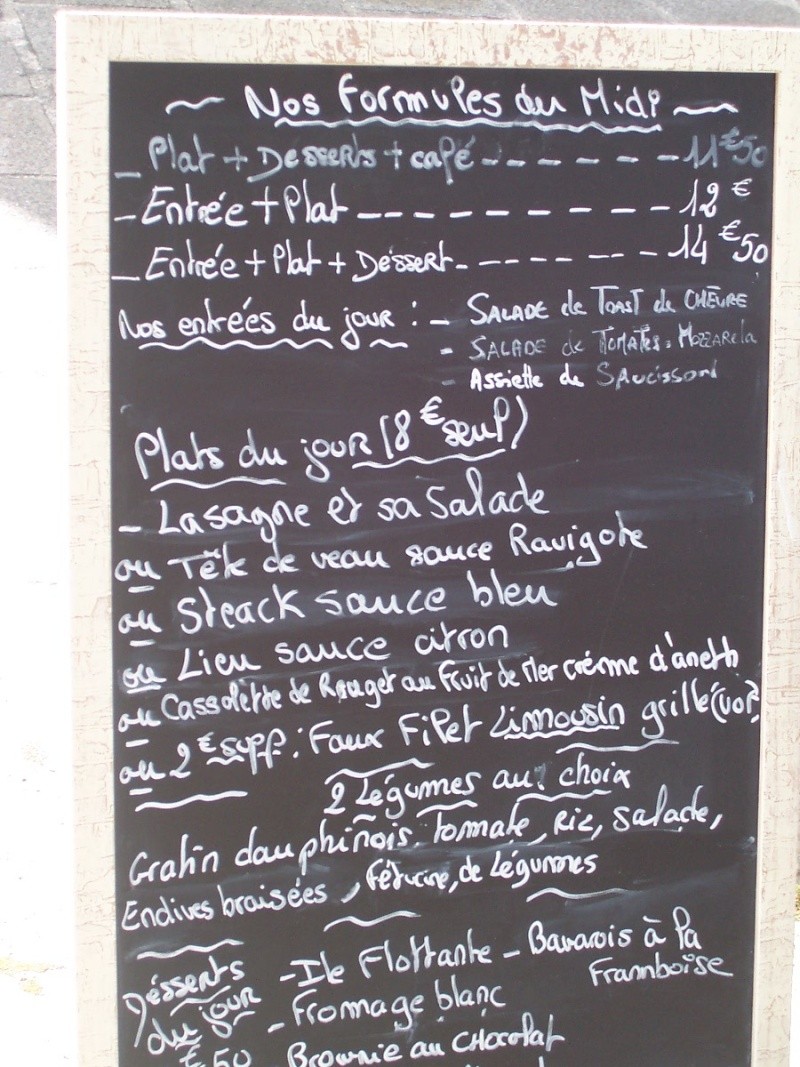 ~ Nos formules du Midi ~
- Plat + Desserts + café - - - - - - 11€50
- Entrée + Plat - - - - - - - - - 12€
- Entrée + Plat + Déssert - - - - - - - 14€50
Nos entrées du jour : - SALADE de TOAST de CHÈVRE
- SALADE de TOMATES = MozzARella
- Assiette de SAucisson
Plats du jour (8€ seul)
- Lasagne et sa Salade
ou Tête de veau sauce Ravigote
ou Steack sauce bleu
ou Lieu sauce citron
ou Cassolette de Rouget au Fruit de Mer crème d'aneth
ou 2€ supp : Faux Filet Limousin grillé (VOF)
2 Légumes au choix
Gratin dauphinois, tomate, Riz, Salade,
Endives braisées, féturine, de Légumes
Désserts du jour - Ile Flottante - Bavarois à la Framboise
- Fromage blanc
€50 Brownie au CHocolat